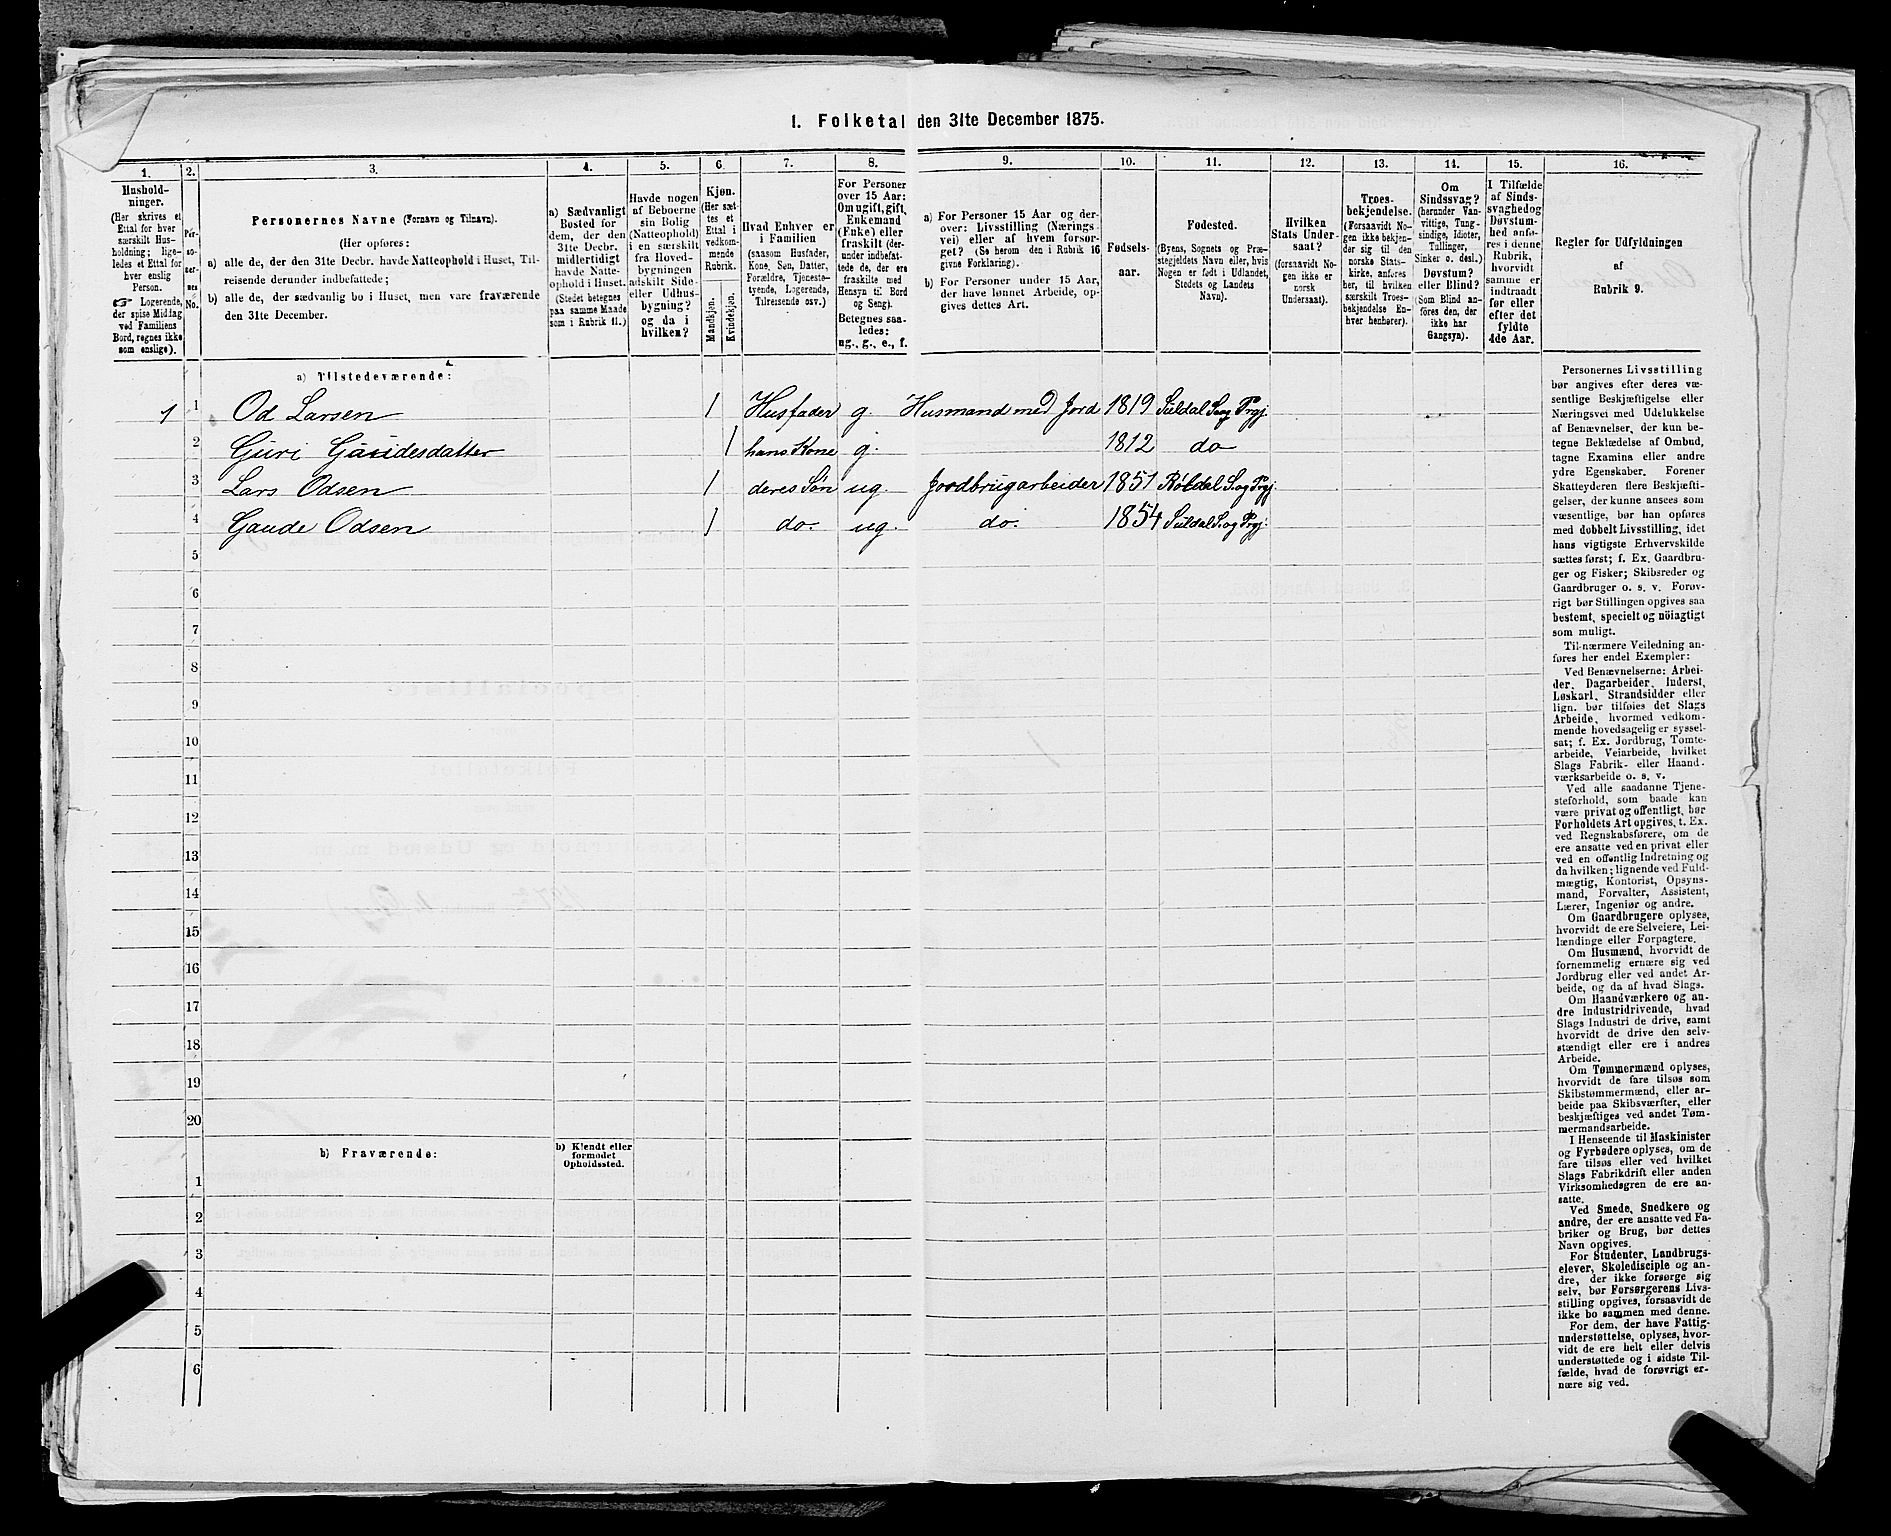 1. Folketal den 31te December 1875.
1.
2.
3.
4.
5.
6.
7.
8.
9.
10.
11.
12.
13.
14.
15.
16.
Hushold-
ninger.
(Her skrives et
Ettal for hver
særskilt Hus-
holdning; lige-
ledes et Ettal for
hver enslig
Person.
☞ Logerende,
der spise Middag
ved Familiens
Bord, regnes ikke
som enslige).
Per-
so-
ner-
nes
No.
Personernes Navne (Fornavn og Tilnavn).
(Her opføres:
a) alle de, der den 31te Decbr. havde Natteophold i Huset, Til-
reisende derunder indbefattede;
b) alle de, der sædvanlig bo i Huset, men vare fraværende
den 31te December.
a) Sædvanligt
Bosted for
dem, der den
31te Decbr.
midlertidigt
havde Natte-
ophold i Huset.
(Stedet betegnes
paa samme Maade
som i Rubrik 11.)
Havde nogen
af Beboerne
sin Bolig
(Natteophold)
i en særskilt
fra Hoved-
bygningen
adskilt Side-
eller Udhus-
bygning?
og da i
hvilken?
Kjøn.
(Her sæt-
tes et
Ettal i
vedkom-
mende
Rubrik.
Mandkjøn.
Kvindekjøn.
Hvad Enhver er
i Familien
(saasom Husfader,
Kone, Søn, Datter,
Forældre, Tjeneste-
tyende, Logerende,
Tilreisende osv.)
For Personer
over 15 Aar:
Om ugift, gift,
Enkemand
(Enke) eller
fraskilt (der-
under indbefat-
tede de, der ere
fraskilte med
Hensyn til Bord
og Seng).
Betegnes saa-
ledes:
ug., g., e., f.
a) For Personer 15 Aar og der-
over: Livsstilling (Nærings-
vei) eller af hvem forsør-
get? (Se herom den i Rubrik 16
givne Forklaring).
b) For Personer under 15 Aar,
der have lønnet Arbeide, op-
gives dettes Art.
Fødsels-
aar.
Fødested.
(Byens, Sognets og Præ-
stegjeldets Navn eller, hvis
Nogen er født i Udlandet,
Stedets og Landets
Navn).
Hvilken
Stats Under-
saat?
(forsaavidt No-
gen ikke er
norsk
Undersaat).
Troes-
bekjendelse.
(Forsaavidt No-
gen ikke bekjen-
der sig til den
norske Stats-
kirke, anføres
her, til hvilken
særskilt Troes-
bekjendelse En-
hver henhører).
Om
Sindssvag?
(herunder Van-
vittige, Tung-
sindige, Idioter,
Tullinger,
Sinker o. desl.)
Døvstum?
eller Blind?
(Som Blind an-
føres den, der
ikke har
Gangsyn).
I Tilfælde
af Sinds-
svaghed og
Døvstum-
hed anfø-
res i denne
Rubrik,
hvorvidt
samme er
indtraadt
før eller
efter det
fyldte
4de Aar.
Regler for Udfyldningen
af
Rubrik 9.
a) Tilstedeværende:
1 1 Od Larsen 1 Husfader g. Husmand med Jord 1819 Suldal S. og Prgj.
2 Guri Gaudesdatter 1 hans Kone g. 1812 do
3 Lars Odsen 1 deres Søn ug. Jordbrugarbeider 1851 Røldal S. og Prgj.
4 Gaude Odsen 1 do. ug. do. 1854 Suldal S. og Prgj.
5
6
7
8
9
10
11
12
13
14
15
16
17
18
19
20
b) Fraværende:
b) Kjendt eller
formodet
Opholdssted.
1
2
3
4
5
6
Personernes Livsstilling
bør angives efter deres væ-
sentlige Beskjæftigelse eller
Næringsvei med Udelukkelse
af Benævnelser, der kun be-
tegne Beklædelse af Ombud,
tagne Examina eller andre
ydre Egenskaber. Forener
Skatteyderen flere Beskjæfti-
gelser, der kunne ansees som
væsentlige, bør han opføres
med dobbelt Livsstilling, idet
hans vigtigste Erhvervskilde
sættes først; f. Ex. Gaardbru-
ger og Fisker; Skibsreder og
Gaardbruger o. s. v. Forøv-
rigt bør Stillingen opgives saa
bestemt, specielt og nöiagtigt
som muligt.
Til nærmere Veiledning an-
føres her endel Exempler:
Ved Benævnelserne: Arbei-
der, Dagarbeider, Inderst,
Løskarl, Strandsidder eller
lign. bør tilføies det Slags
Arbeide, hvormed vedkom-
mende hovedsagelig er syssel-
sat; f. Ex. Jordbrug, Tomte-
arbeide, Veiarbeide, hvilket
Slags Fabrik- eller Haand-
værksarbeide o. s. v.
Ved alle saadanne Tjene-
steforhold, som baade kan
være privat og offentligt, bør
Forholdets Art opgives, t. Ex.
ved Regnskabsførere, om de
ere ansatte ved en privat eller
ved en offentlig Indretning og
da hvilken; lignende ved Fuld-
mægtig, Kontorist, Opsyns-
mand, Forvalter, Assistent,
Lærer, Ingeniør og andre.
Om Gaardbrugere oplyses,
hvorvidt de ere Selveiere, Lei-
lændinge eller Forpagtere.
Om Husmænd, hvorvidt de
fornemmelig ernære sig ved
Jordbrug eller ved andet Ar-
beide, og da af hvad Slags.
Om Haandværkere og an-
dre Industridrivende, hvad
Slags Industri de drive, samt
hvorvidt de drive den selv-
stændigt eller ere i andres
Arbeide.
Om Tømmermænd oplyses,
hvorvidt de fare tilsøs som
Skibstømmermænd, eller ar-
beide paa Skibsværfter, eller
beskjæftiges ved andet Tøm-
mermandsarbeide.
I Henseende til Maskinister
og Fyrbødere oplyses, om de
fare tilsøs eller ved hvilket
Slags Fabrikdrift eller anden
Virksomhedsgren de ere an-
satte.
Ved Smede, Snedkere og
andre, der ere ansatte ved Fa-
briker og Brug, bør dettes
Navn opgives.
For Studenter, Landbrugs-
elever, Skoledisciple og an-
dre, der ikke forsørge sig
selv, bør Forsørgerens Livs-
stilling opgives, forsaavidt de
ikke bo sammen med denne.
For dem, der have Fattig-
understøttelse, oplyses, hvor-
vidt de ere helt eller delvis
understøttede og i sidste Til-
fælde, hvad de forøvrigt er-
nære sig ved.